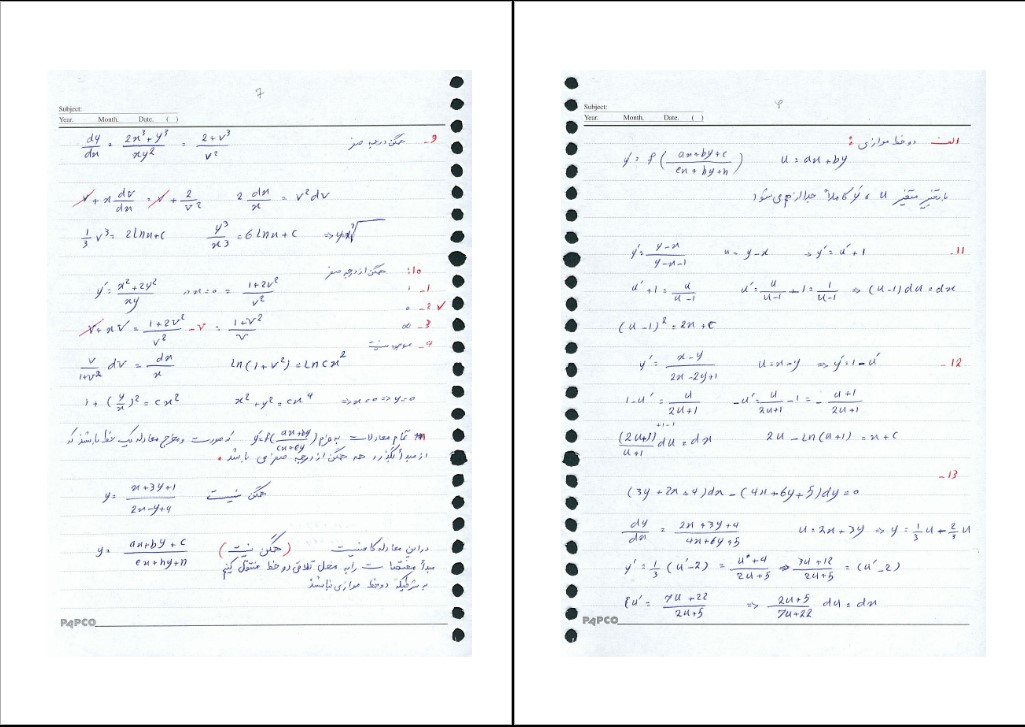 7
Subject:
Year. Month. Date. ( )
9- همگن درجه صفر
dy/dx = (2x³+y³)/(xy²) = (2+v³)/v²
v + x dv/dx = v + 2/v²    2 dx/x = v² dv
1/3 v³ = 2lnx+c    y³/x³ = 6lnx+c ⇒ y=x∛
10: همگن از درجه صفر
y' = (x²+2y²)/(xy) ⇒ x=0 = (1+2v²)/v²
1 -1
0 -2 ✓
v+xv' = (1+2v²)/v² - v = (1+v²)/v
∞ -3
v/(1+v²) dv = dx/x    ln(1+v²)=lncx²
1+(y/x)² = cx²    x²+y² = cx⁴ ⇒ x=0 ⇒ y=0
تمام معادلات به فرم y'=f((ax+by)/(cx+ey)) که صورت و مخرج معادله یک خط باشد که
از مبدأ بگذرد همگن از درجه صفر می باشد.
y = (x+3y+1)/(2x-y+4)    همگن نیست
y = (ax+by+c)/(ex+hy+n)    (همگن نیست)    در این معادله
مبدأ مختصات را به محل تلاقی دو خط منتقل کنم
به شرطیکه دو خط موازی نباشد
PAPCO
Subject:
Year. Month. Date. ( )
الف دو خط موازی:
y' = f((ax+by+c)/(ex+hy+n))    u = ax+by
با تغییر متغیر u ، y' کاملاً جدا می شود
11-
y' = (y-x)/(y-x-1)    u = y-x    ⇒ y' = u'+1
u'+1 = u/(u-1)    u' = u/(u-1) + 1 = 1/(u-1) ⇒ (u-1)du = dx
(u-1)² = 2x+c
12-
y' = (x-y)/(2x-2y+1)    u = x-y ⇒ y' = 1-u'
1-u' = u/(2u+1)    -u' = u/(2u+1) - 1 = - (u+1)/(2u+1)
+1-1
(2u+1)/(u+1) du = dx    2u - Ln(u+1) = x+c
13-
(3y+2x+4)dx - (4x+6y+5)dy = 0
dy/dx = (2x+3y+4)/(4x+6y+5)    u = 2x+3y ⇒ y = 1/3 u + 2/3 u
y' = 1/3 (u'-2) = (u+4)/(2u+5) ⇒ (3u+12)/(2u+5) = (u'-2)
u' = (7u+22)/(2u+5) ⇒ (2u+5)/(7u+22) du = dx
PAPCO